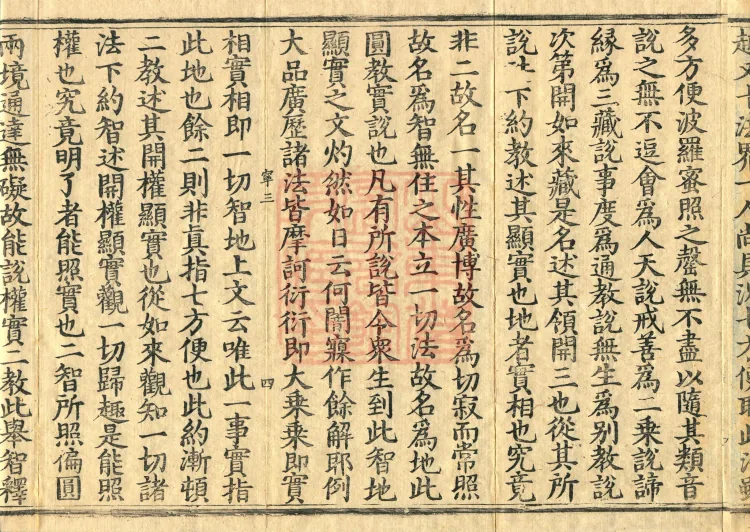 多方便波羅蜜照之罄無不盡以隨其類音
說之無不逗會爲人天說戒善爲二乘說諦
緣爲三藏說事度爲通教說無生爲別教說
次第開如來藏是名述其領開三也從其所
說下約教述其顯實也地者實相也究竟
非二故名一其性廣博故名爲切寂而常照
故名爲智無住之本立一切法故名爲地此
圓教實說也凡有所說皆令衆生到此智地
顯實之文灼然如日云何闇寐作餘解耶例
大品廣歷諸法皆摩訶衍衍即大乘乘即實
寧三 四
相實相即一切智地上文云唯此一事實指
此地也餘二則非眞指七方便也此約漸頓
二教述其開權顯實也從如來觀知一切諸
法下約智述開權顯實觀一切歸趣是能照
權也究竟明了者能照實也二智所照偏圓
兩境通達無礙故能說權實二教此舉智釋